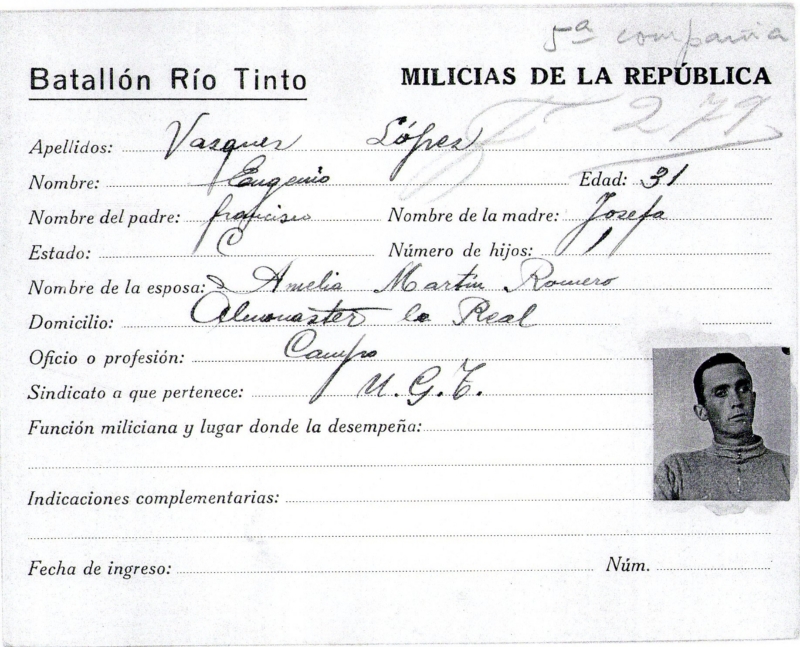 5ª compañia
Batallón Río Tinto MILICIAS DE LA REPÚBLICA
279
Apellidos: Vasquez López
Nombre: Eugenio Edad: 31
Nombre del padre: francisco Nombre de la madre: Josefa
Estado: C Número de hijos: 1
Nombre de la esposa: Amelia Martin Romero
Domicilio: Almonaster la Real
Oficio o profesión: Campo
Sindicato a que pertenece: U.G.T.
Función miliciana y lugar donde la desempeña:
Indicaciones complementarias:
Fecha de ingreso: Núm.